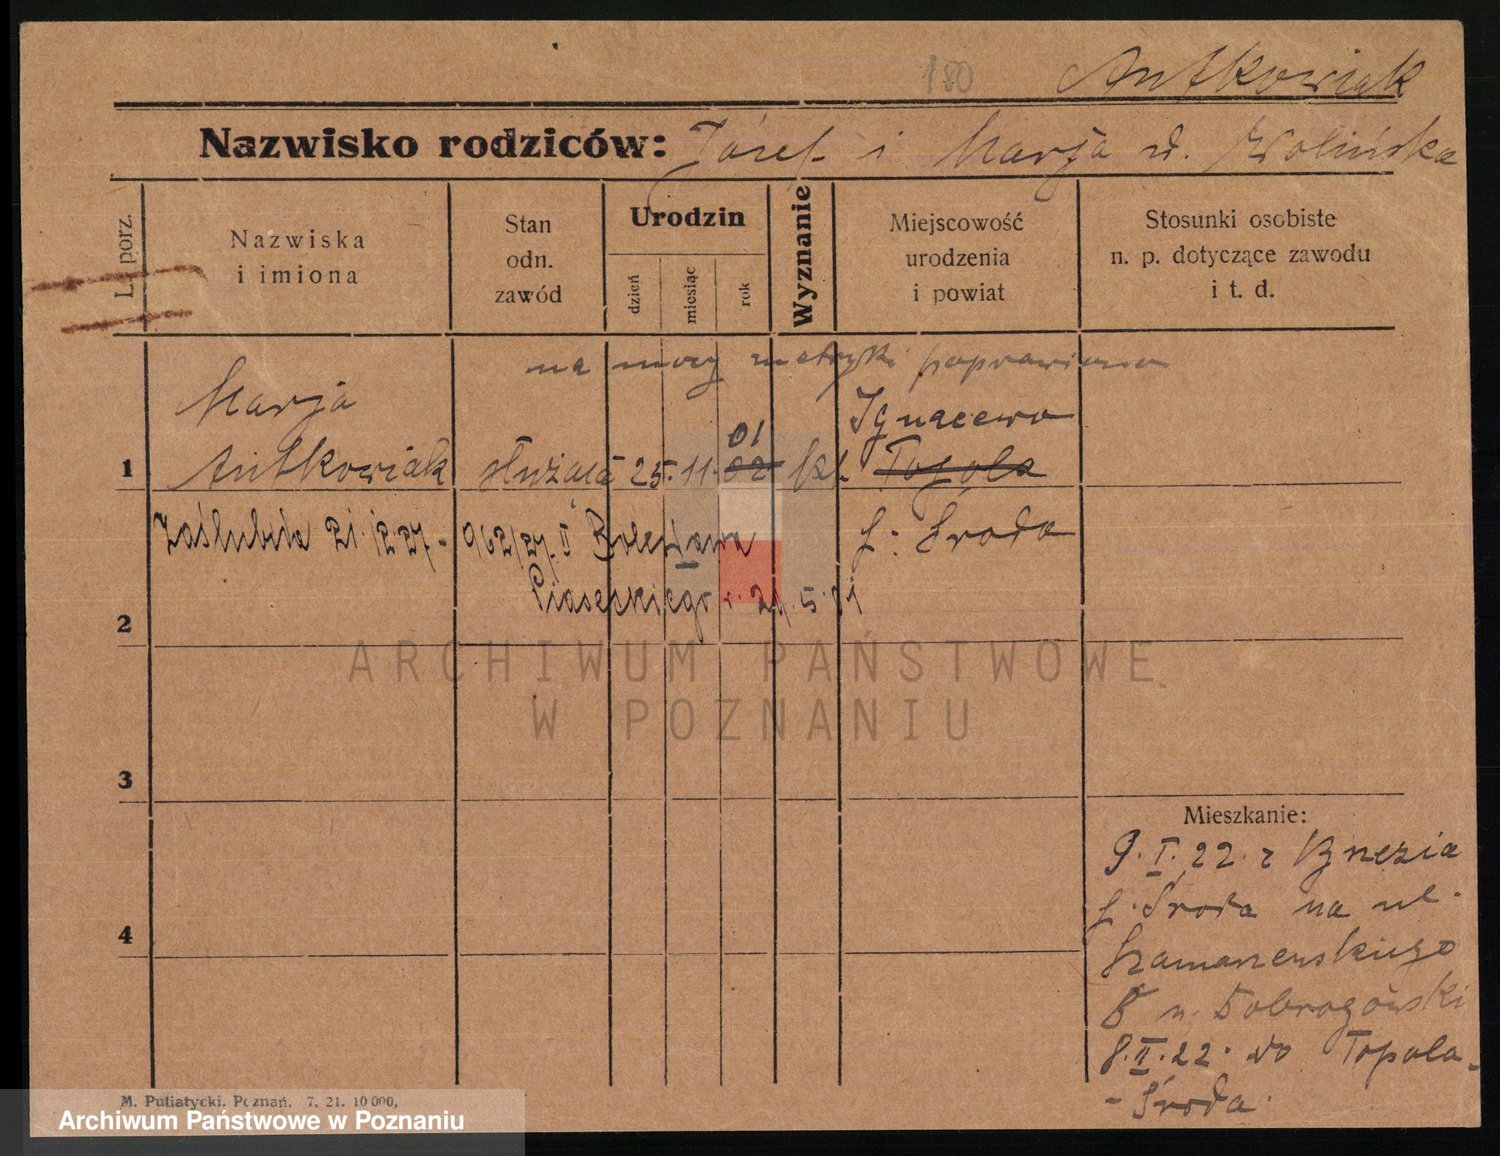 180 Antkowiak
Nazwisko rodziców: Józef i Marja d. Wolińska
L. porz.
Nazwiska
i imiona
Stan
odn.
zawód
Urodzin
dzień
miesiąc
rok
Wyznanie
Miejscowość
urodzenia
i powiat
Stosunki osobiste
n. p. dotyczące zawodu
i t. d.
na mocy metryki poprawiono
Marja
Ignacewo
01
1 Antkowiak służąca 25. 11. 02 kt Topola
Zaślubiła 21.12.27. 962/27. II Bolesława
p. Środa
Piaseckiego
2
ARCHIWUM PAŃSTWOWE
W POZNANIU
3
Mieszkanie:
9. I. 22. z Gnezia
p. Środa na ul.
Szamarzewskiego
u. Dobrogowski
4
8. II. 22. do Topola-
- Środa.
M. Putiatycki. Poznań. 7. 21. 10 000,
Archiwum Państwowe w Poznaniu